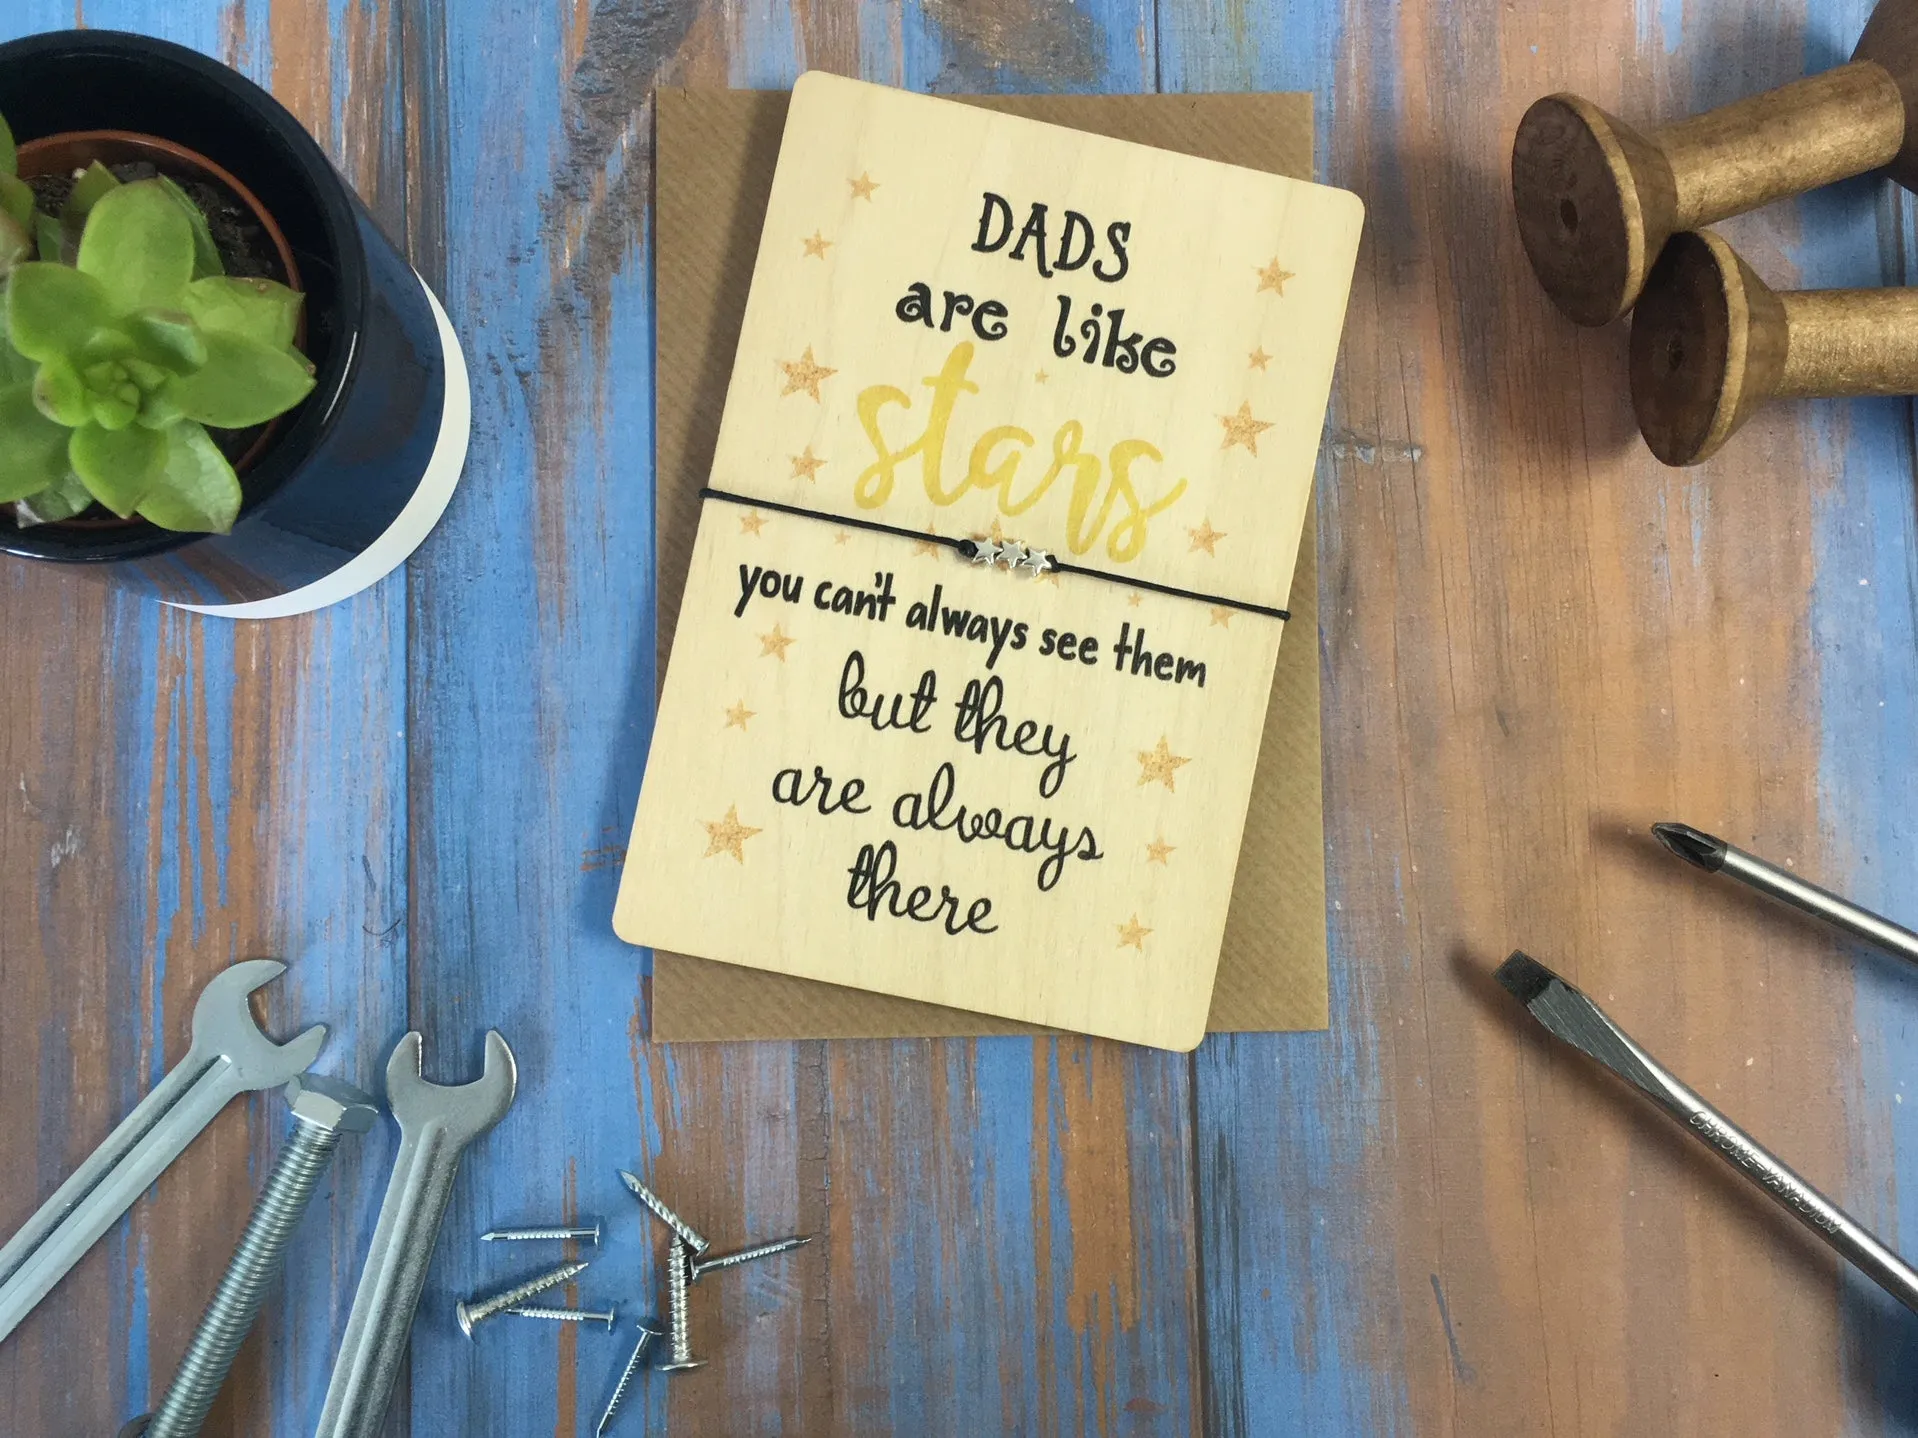 DADS
are like
stars
you can't always see them
but they
are always
there
CHROME-VANADIUM